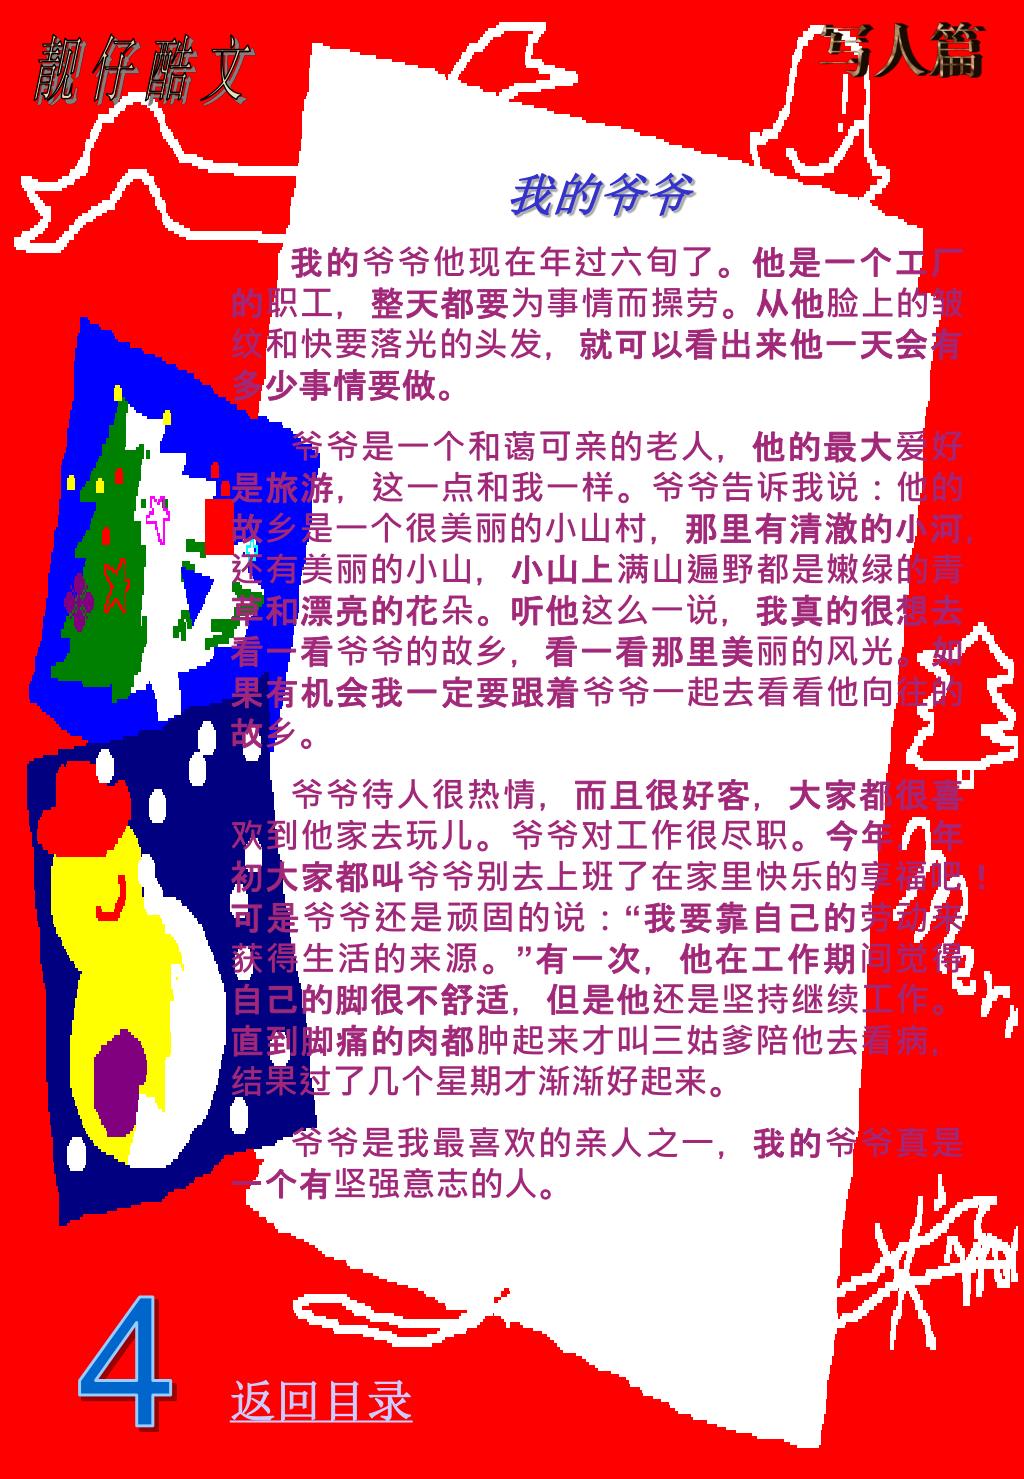 靓仔酷文
写人篇
我的爷爷
我的爷爷他现在年过六旬了。他是一个工厂
的职工，整天都要为事情而操劳。从他脸上的皱
纹和快要落光的头发，就可以看出来他一天会有
多少事情要做。
爷爷是一个和蔼可亲的老人，他的最大爱好
是旅游，这一点和我一样。爷爷告诉我说：他的
故乡是一个很美丽的小山村，那里有清澈的小河，
还有美丽的小山，小山上满山遍野都是嫩绿的青
草和漂亮的花朵。听他这么一说，我真的很想去
看一看爷爷的故乡，看一看那里美丽的风光。如
果有机会我一定要跟着爷爷一起去看看他向往的
故乡。
爷爷待人很热情，而且很好客，大家都很喜
欢到他家去玩儿。爷爷对工作很尽职。今年，年
初大家都叫爷爷别去上班了在家里快乐的享福吧！
可是爷爷还是顽固的说：“我要靠自己的劳动来
获得生活的来源。”有一次，他在工作期间觉得
自己的脚很不舒适，但是他还是坚持继续工作。
直到脚痛的肉都肿起来才叫三姑爹陪他去看病，
结果过了几个星期才渐渐好起来。
爷爷是我最喜欢的亲人之一，我的爷爷真是
一个有坚强意志的人。
4
返回目录